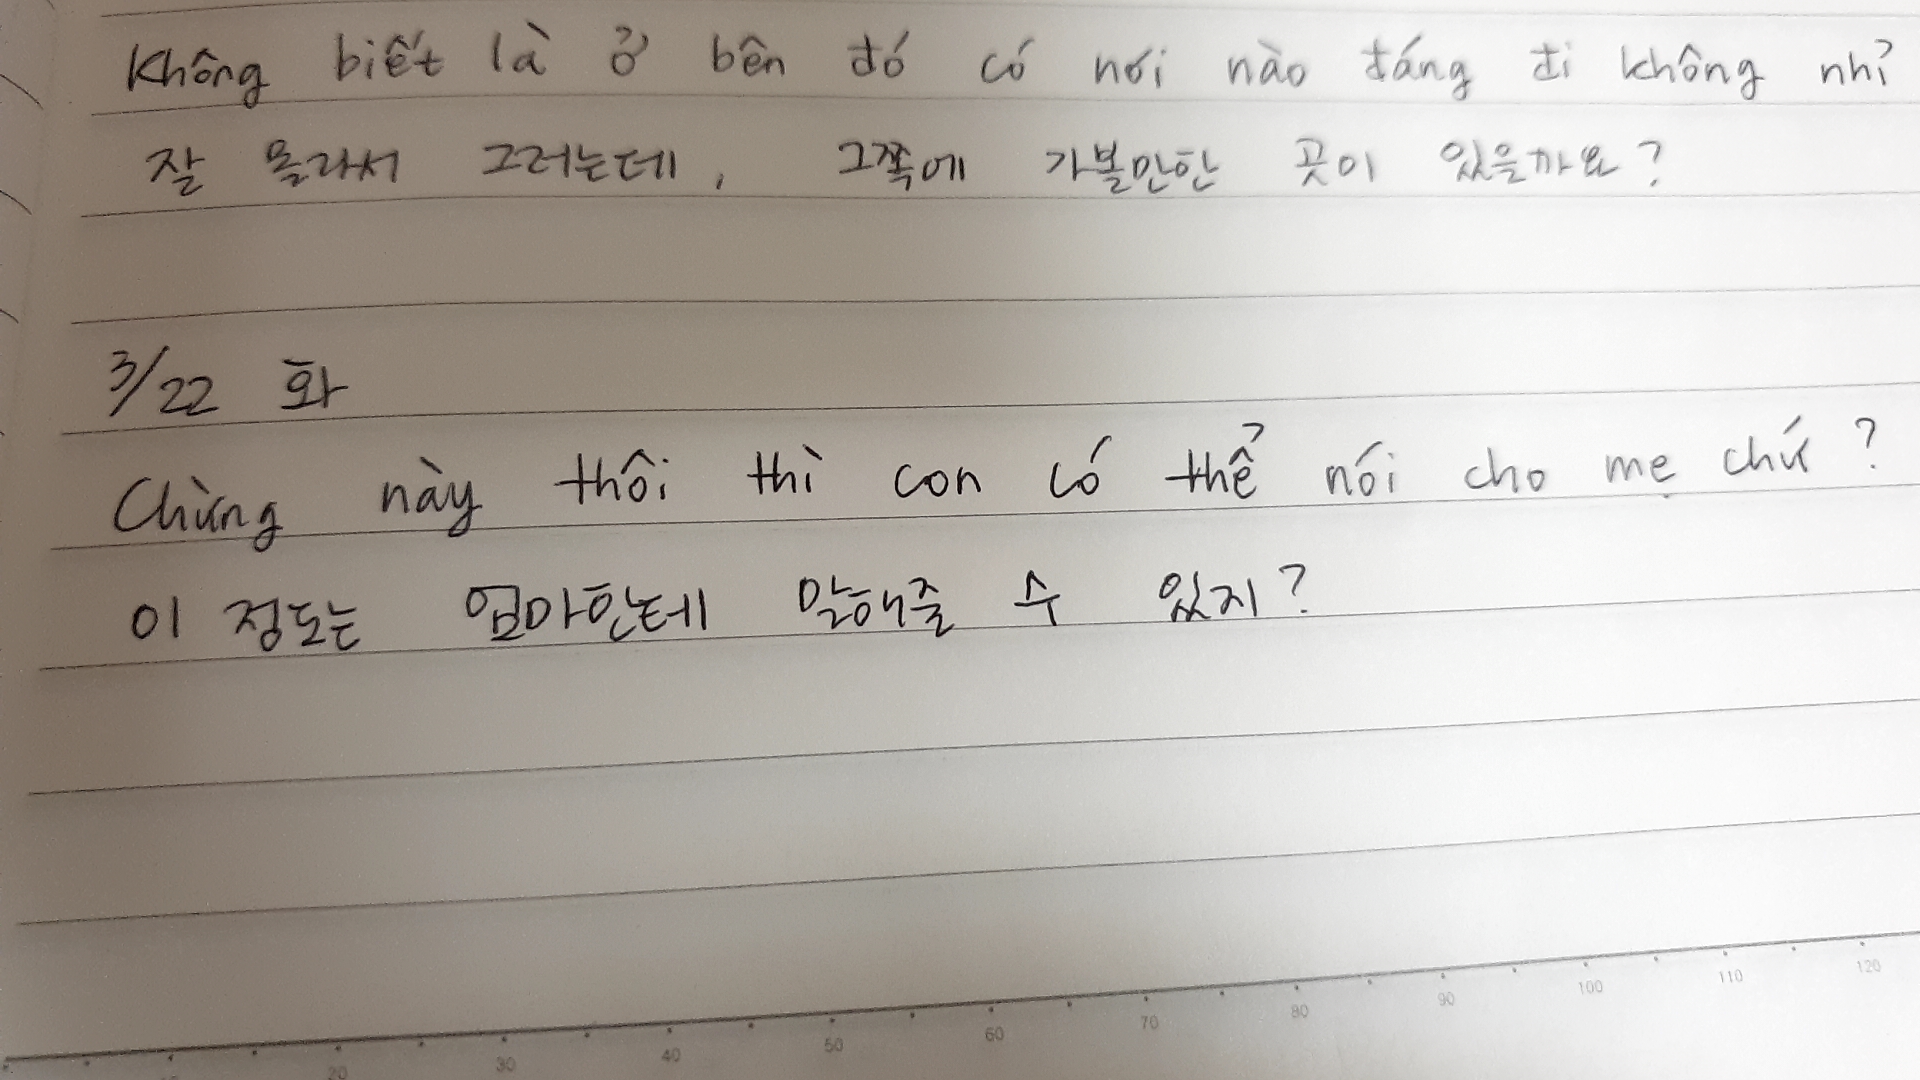 Không biết là ở bên đó có nơi nào đáng đi không nhỉ
잘 몰라서 그러는데, 그쪽에 가볼만한 곳이 있을까요?
3/22 화
Chừng này thôi thì con có thể nói cho mẹ chứ?
이 정도는 엄마한테 말해줄 수 있지?
20 30 40 50 60 70 80 90 100 110 120